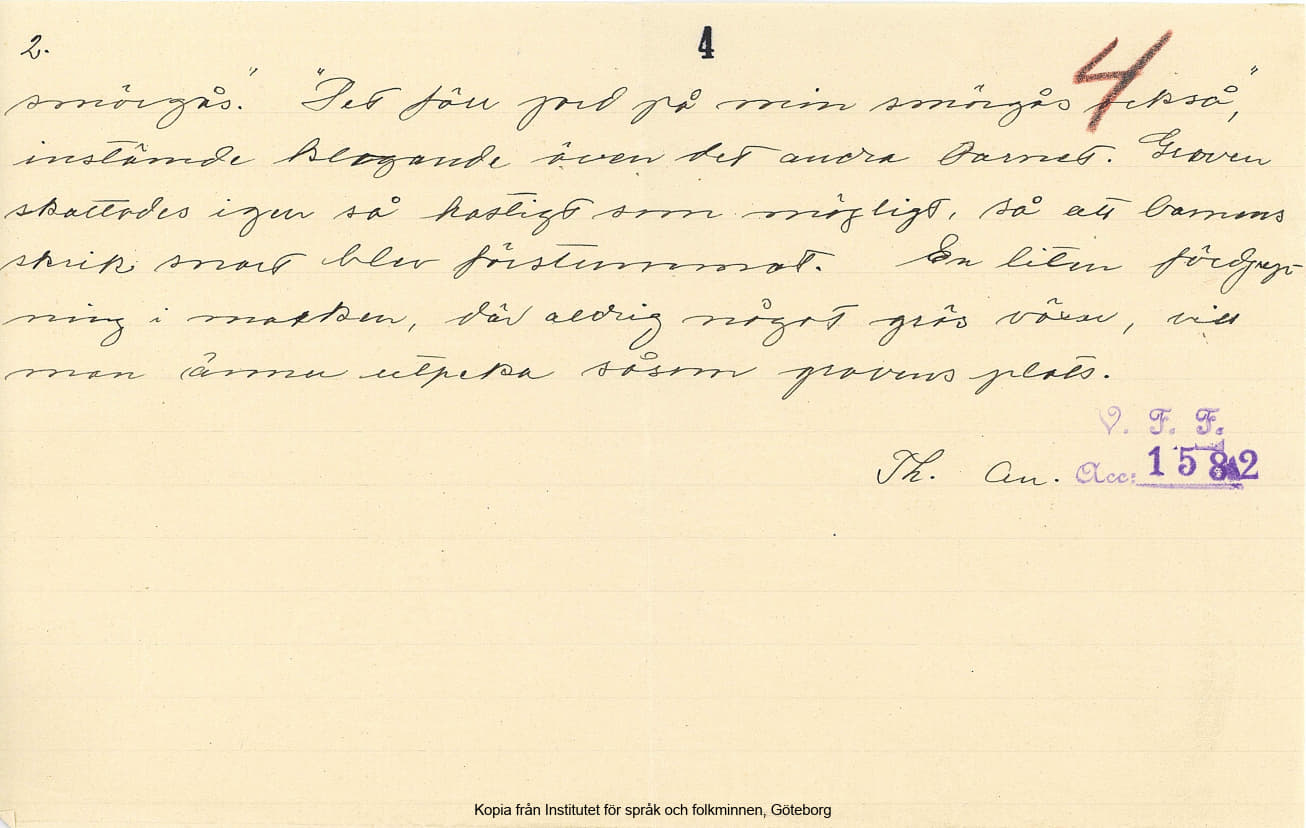 2.
4
4
smörgås." "Det föll jord på min smörgås också,"
instämde klagande även det andra barnet. Graven
skottades igen så hastigt som möjligt, så att barnens
skrik snart blev förstummat. En liten fördjup-
ning i marken, där aldrig något gräs växer, vill
man ännu utpeka såsom gravens plats.
V. F. F.
Th. An. Acc: 1582
Kopia från Institutet för språk och folkminnen, Göteborg